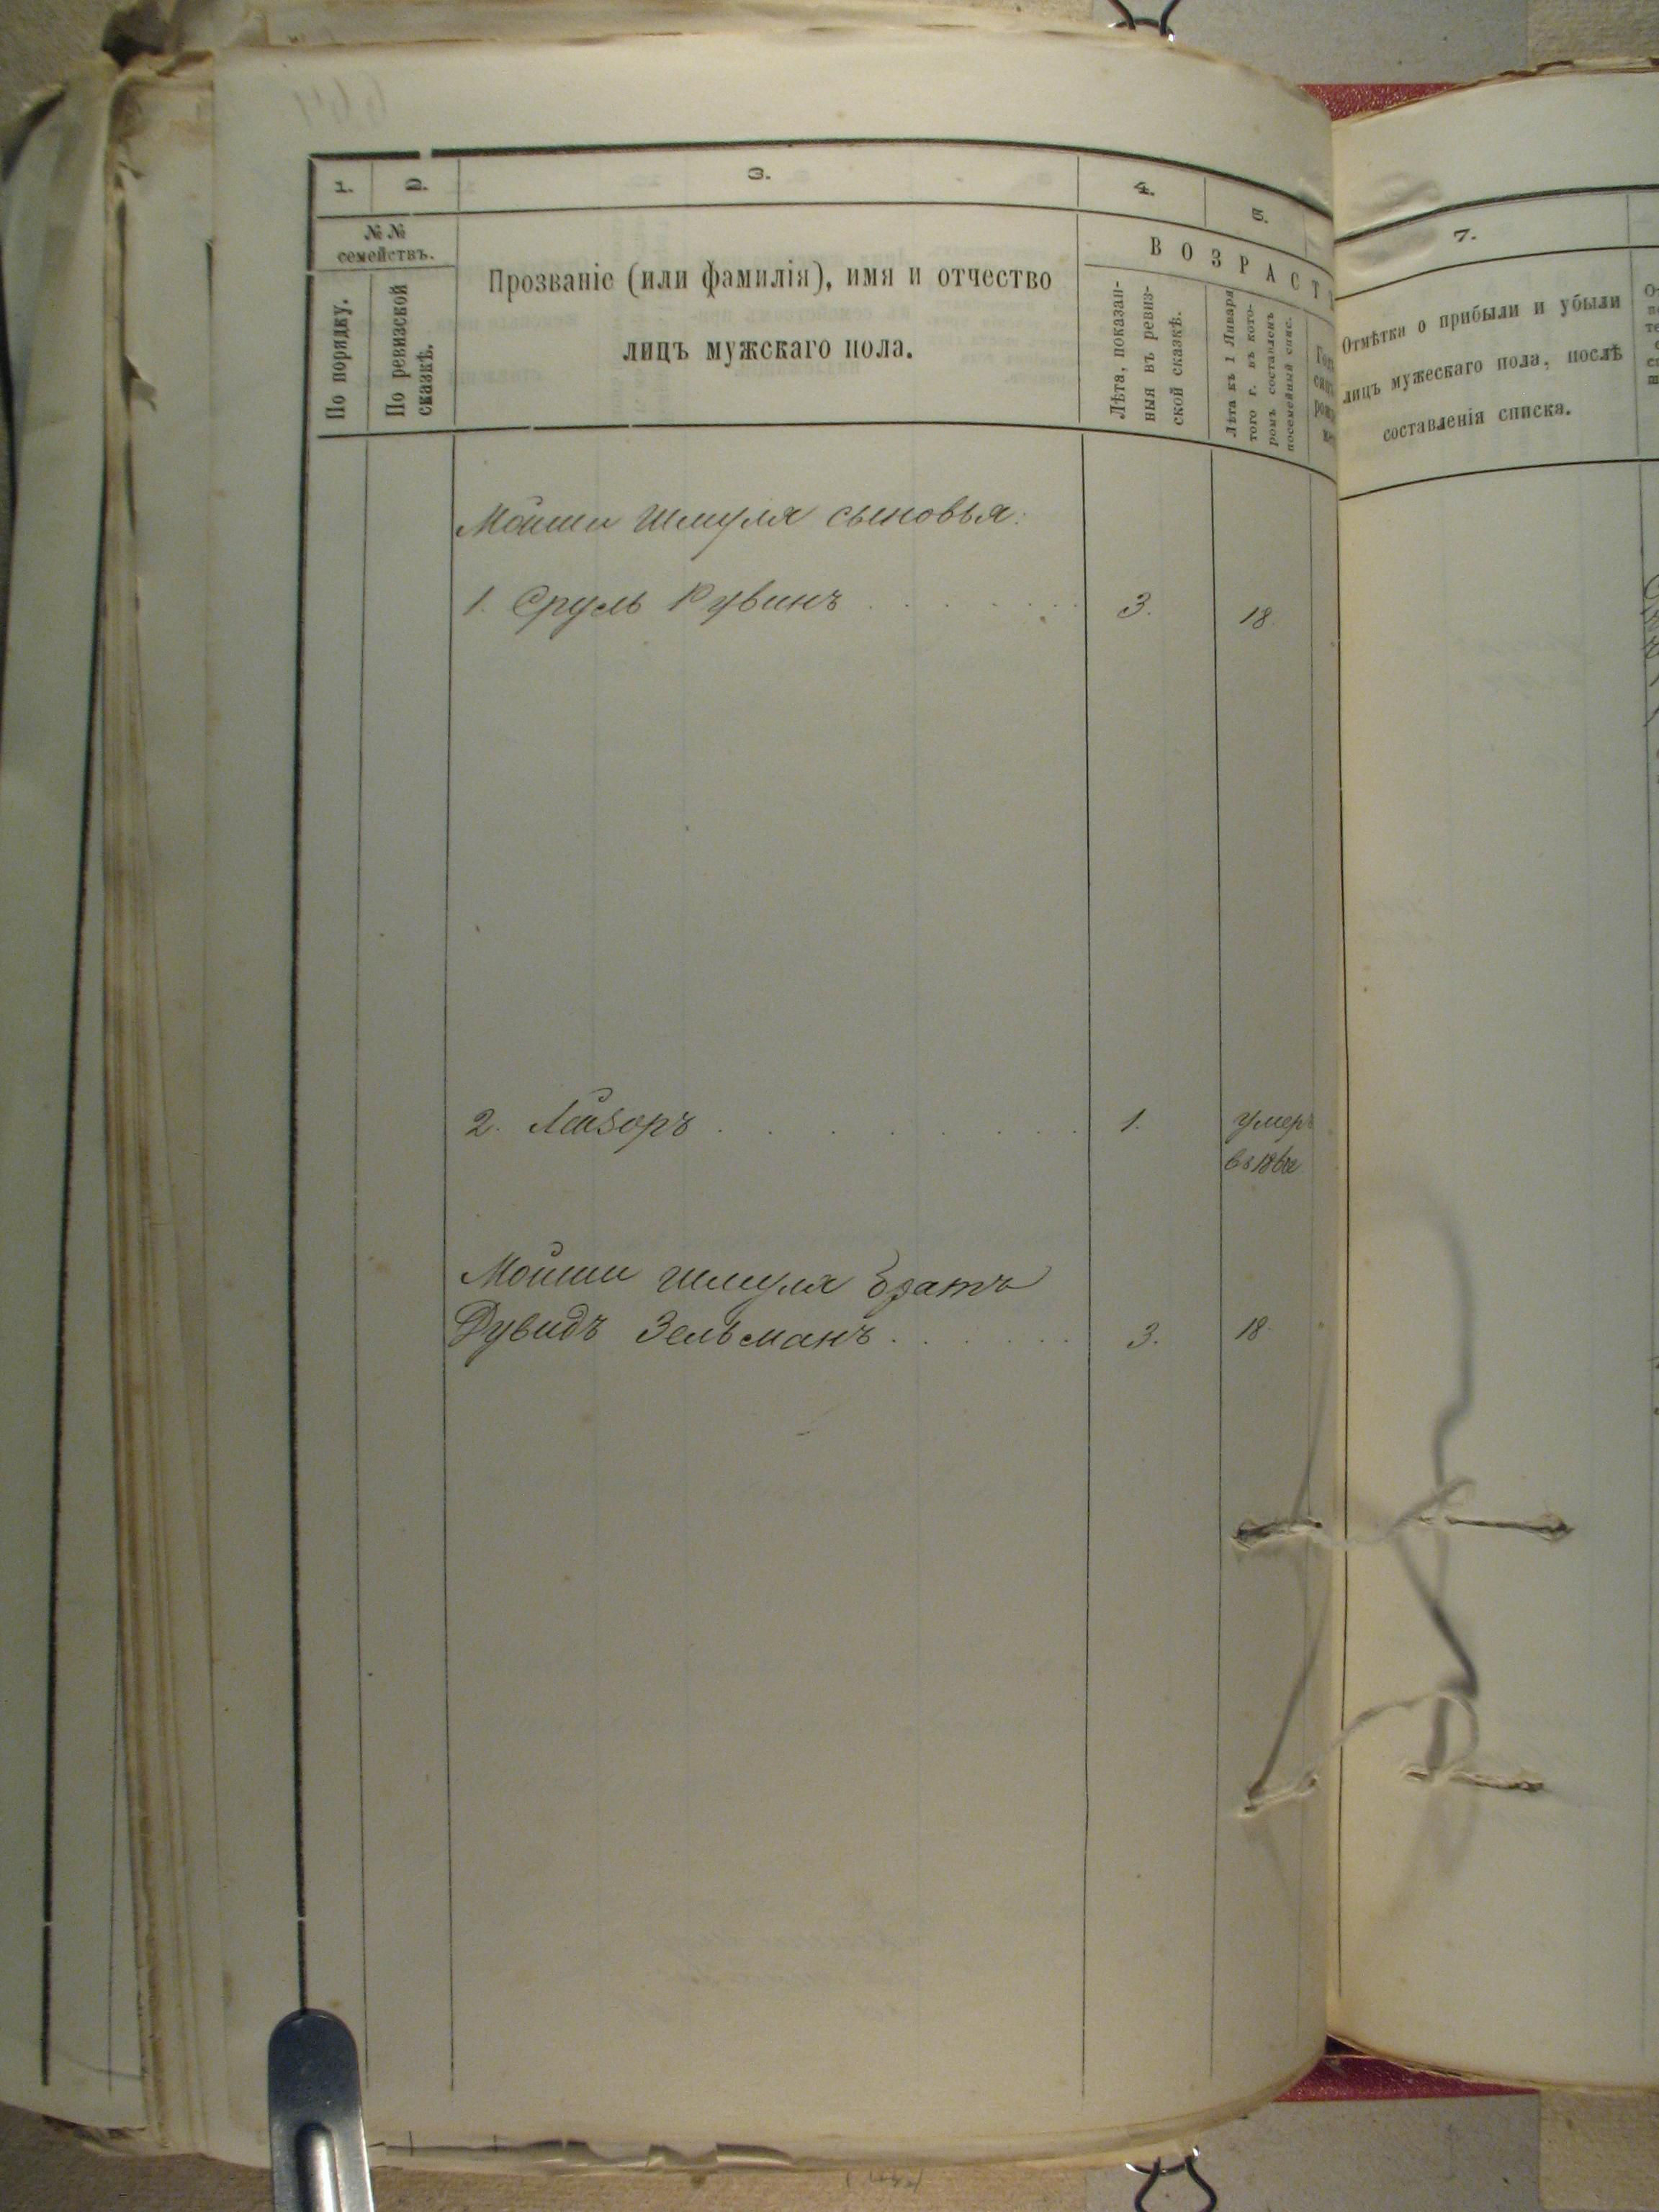 1.
2.
3.
4.
5.
№ №
семействъ.
По порядку.
По ревизской
сказкѣ.
Прозваніе (или фамилія), имя и отчество
лицъ мужскаго пола.
ВОЗРАСТ
Лѣта, показан-
ныя въ ревиз-
ской сказкѣ.
Лѣта къ 1 Января
того г. въ кото-
ромъ составленъ
посемейный спис.
7.
Отмѣтка о прибыли и убыли
лицъ мужескаго пола, послѣ
составленія списка.
Мойши Шмуля сыновья:
1. Сруль Рувинъ . . . . . . 3. 18.
2. Лейзоръ . . . . . . . . 1. умеръ
въ 186
Мойши Шмуля братъ
Дувидъ Зельманъ . . . . . . 3. 18